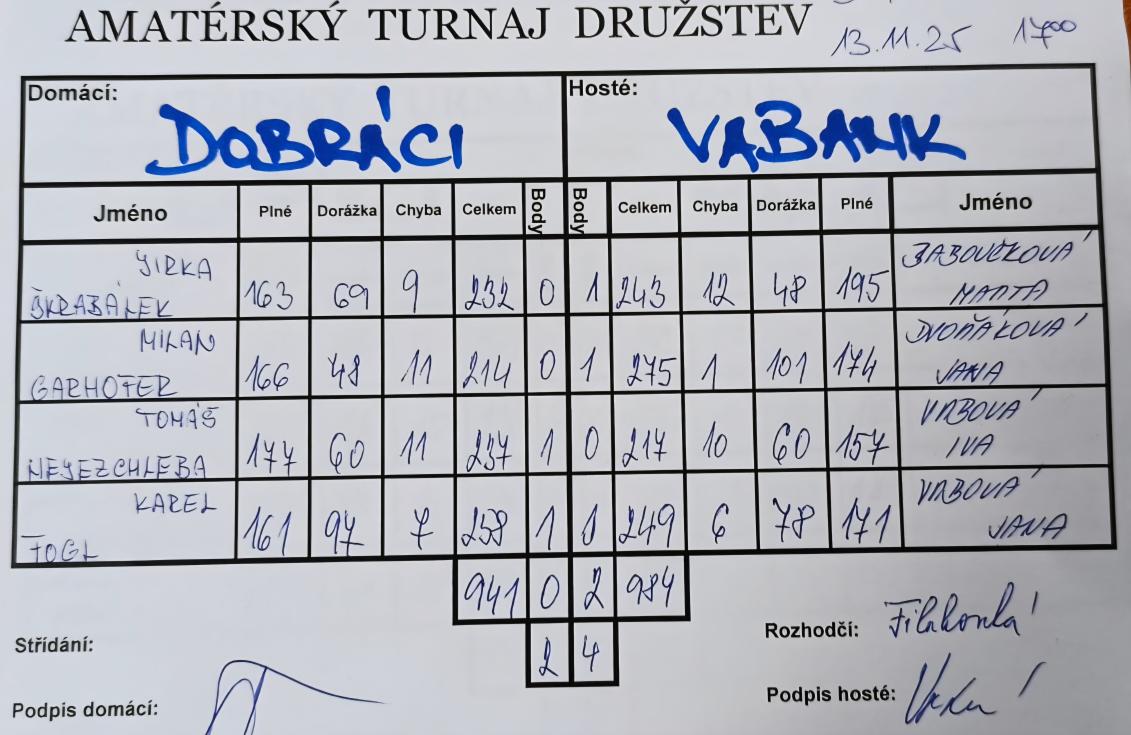 AMATÉRSKÝ TURNAJ DRUŽSTEV
13.11.25 17⁰⁰
Domácí: Hosté:
DOBRÁCI VABANK
Jméno Plné Dorážka Chyba Celkem Body Body Celkem Chyba Dorážka Plné Jméno
JIRKA BABOUČKOVÁ
ŠKRABÁLEK 163 69 9 232 0 1 243 12 48 195 MARTA
MILAN DVOŘÁKOVÁ
GARHOFER 166 48 11 214 0 1 275 1 101 174 JANA
TOMÁŠ VRBOVÁ
NEJEZCHLEBA 177 60 11 237 1 0 217 10 60 157 IVA
KAREL VRBOVÁ
FOGL 161 97 7 258 1 0 249 6 78 171 JANA
941 0 2 984
2 4
Střídání: Rozhodčí:
Podpis domácí: Podpis hosté: